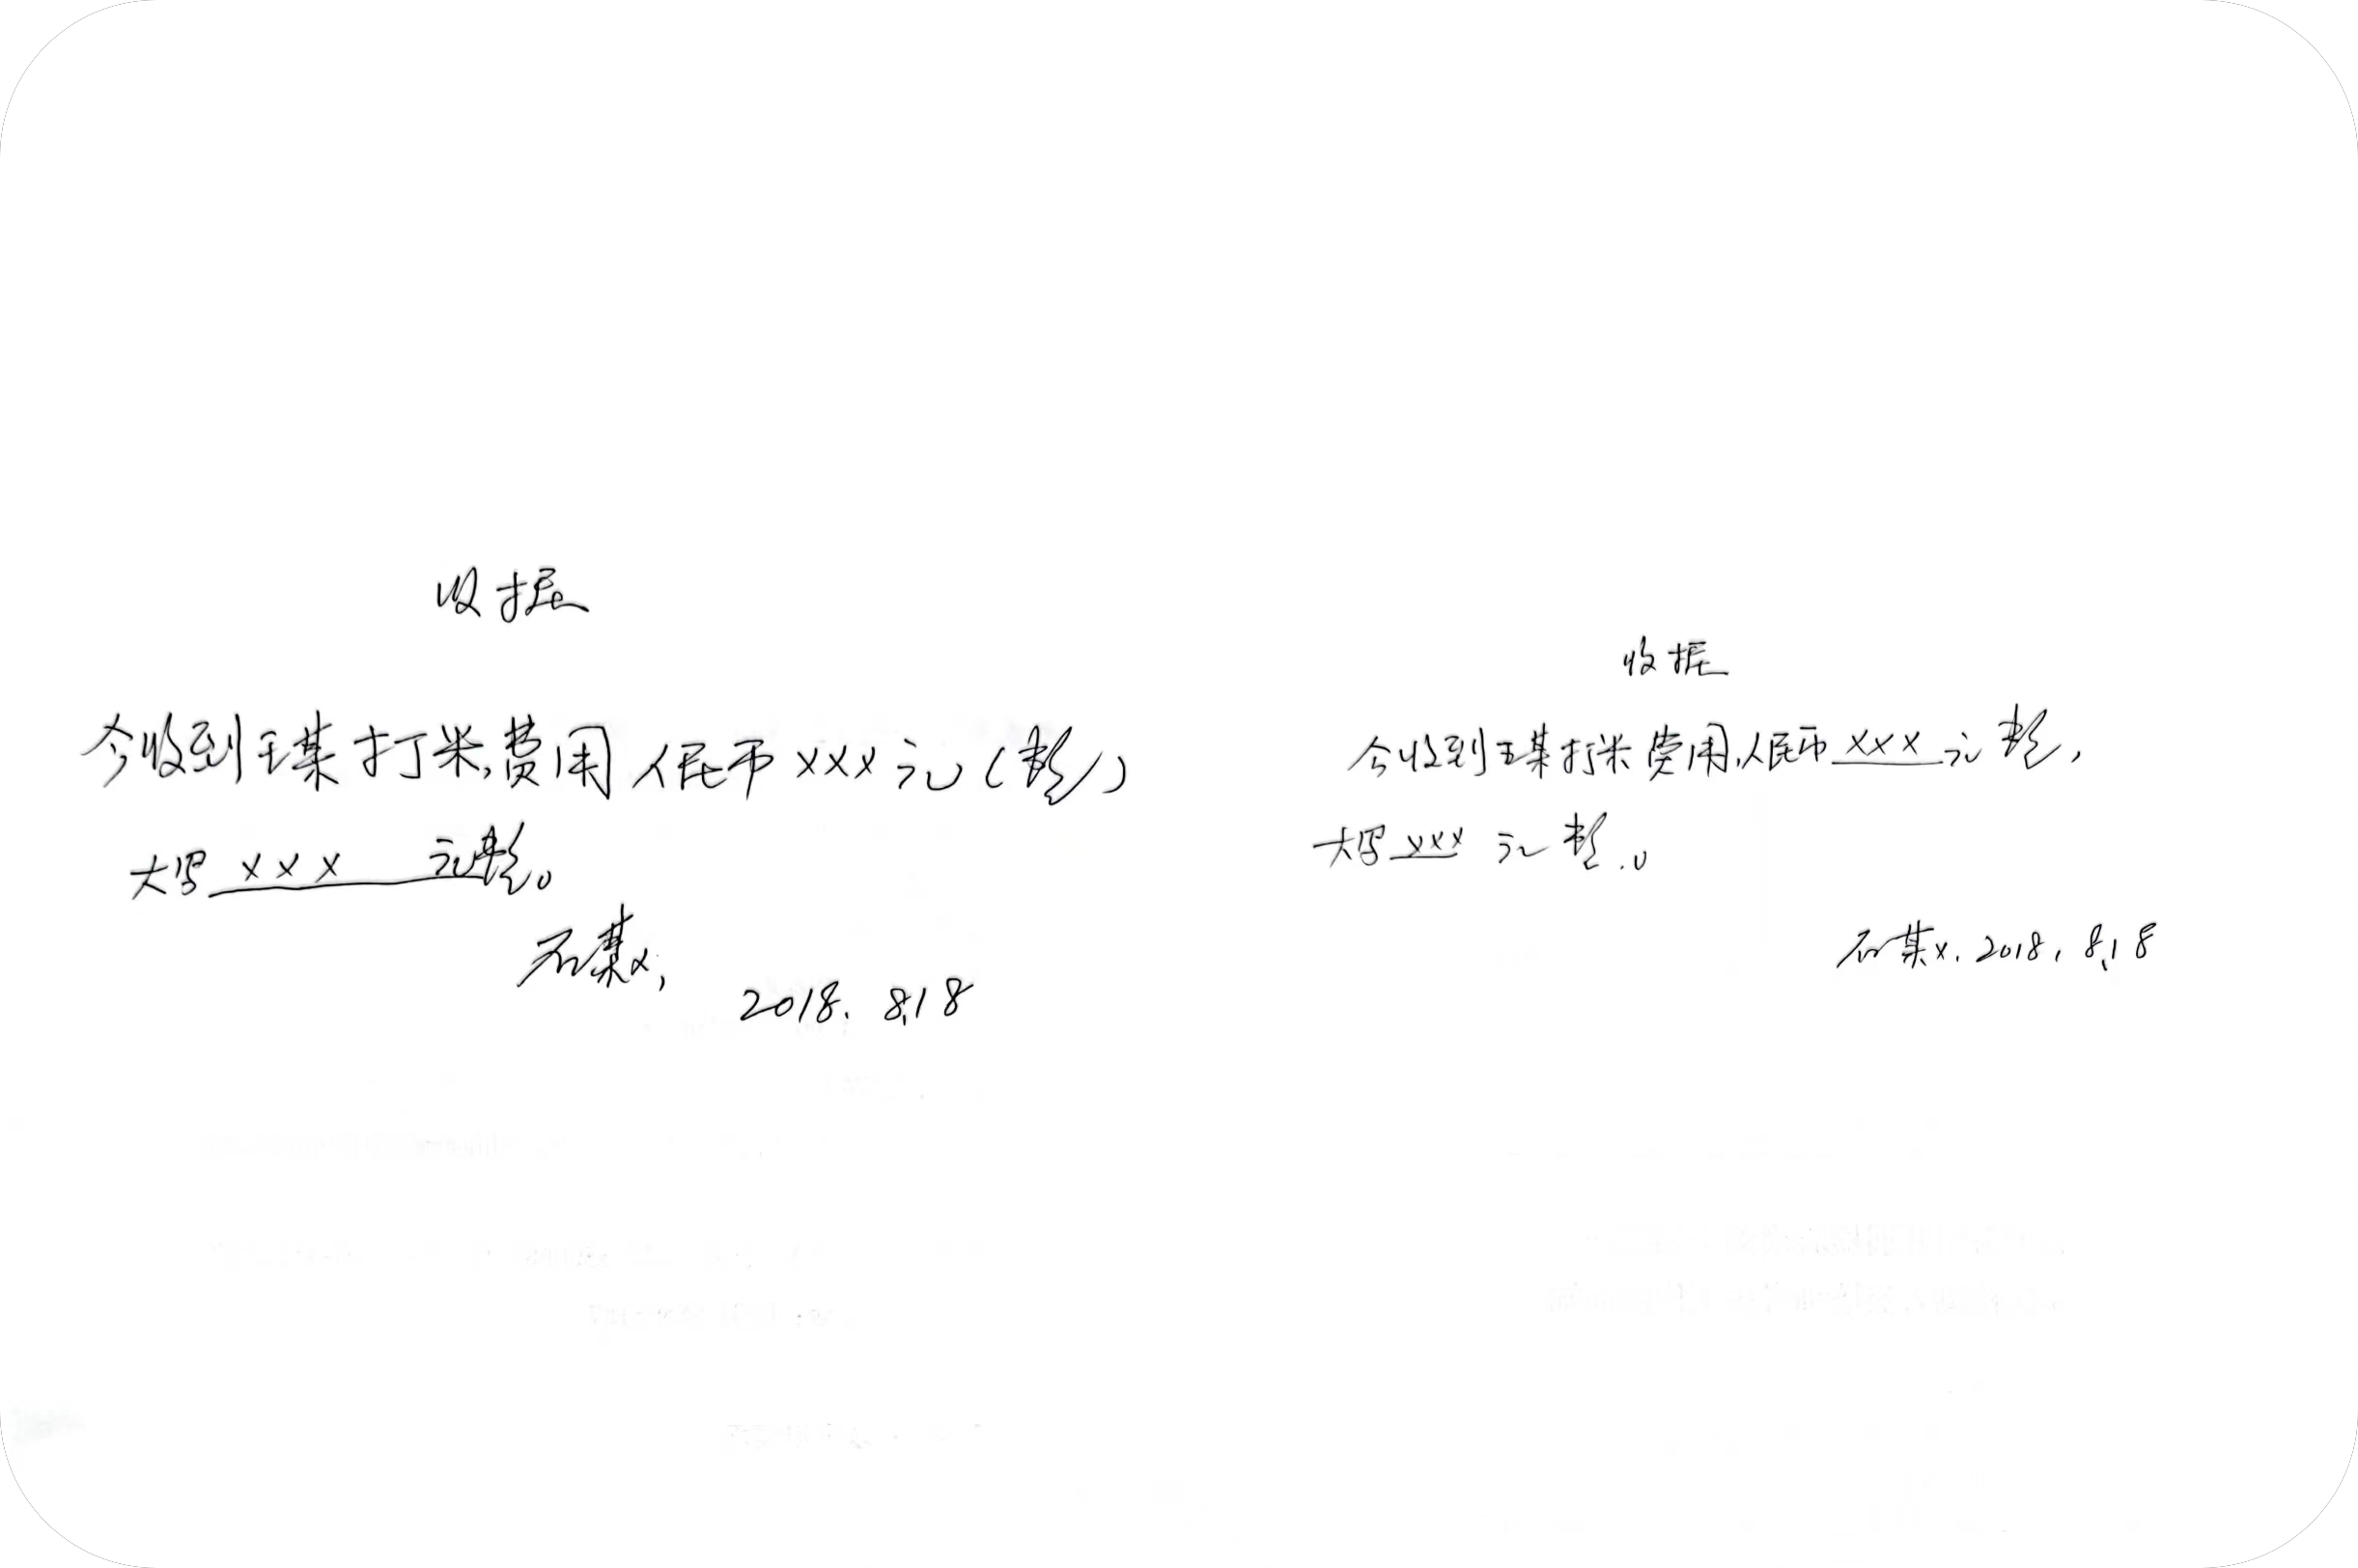 收据
今收到王某打米费用人民币xxx元(整)
大写 xxx 元整。
石某x,
2018. 8.18
收据
今收到王某打米费用,人民币xxx元整,
大写xxx元整.。
石某x. 2018. 8.18